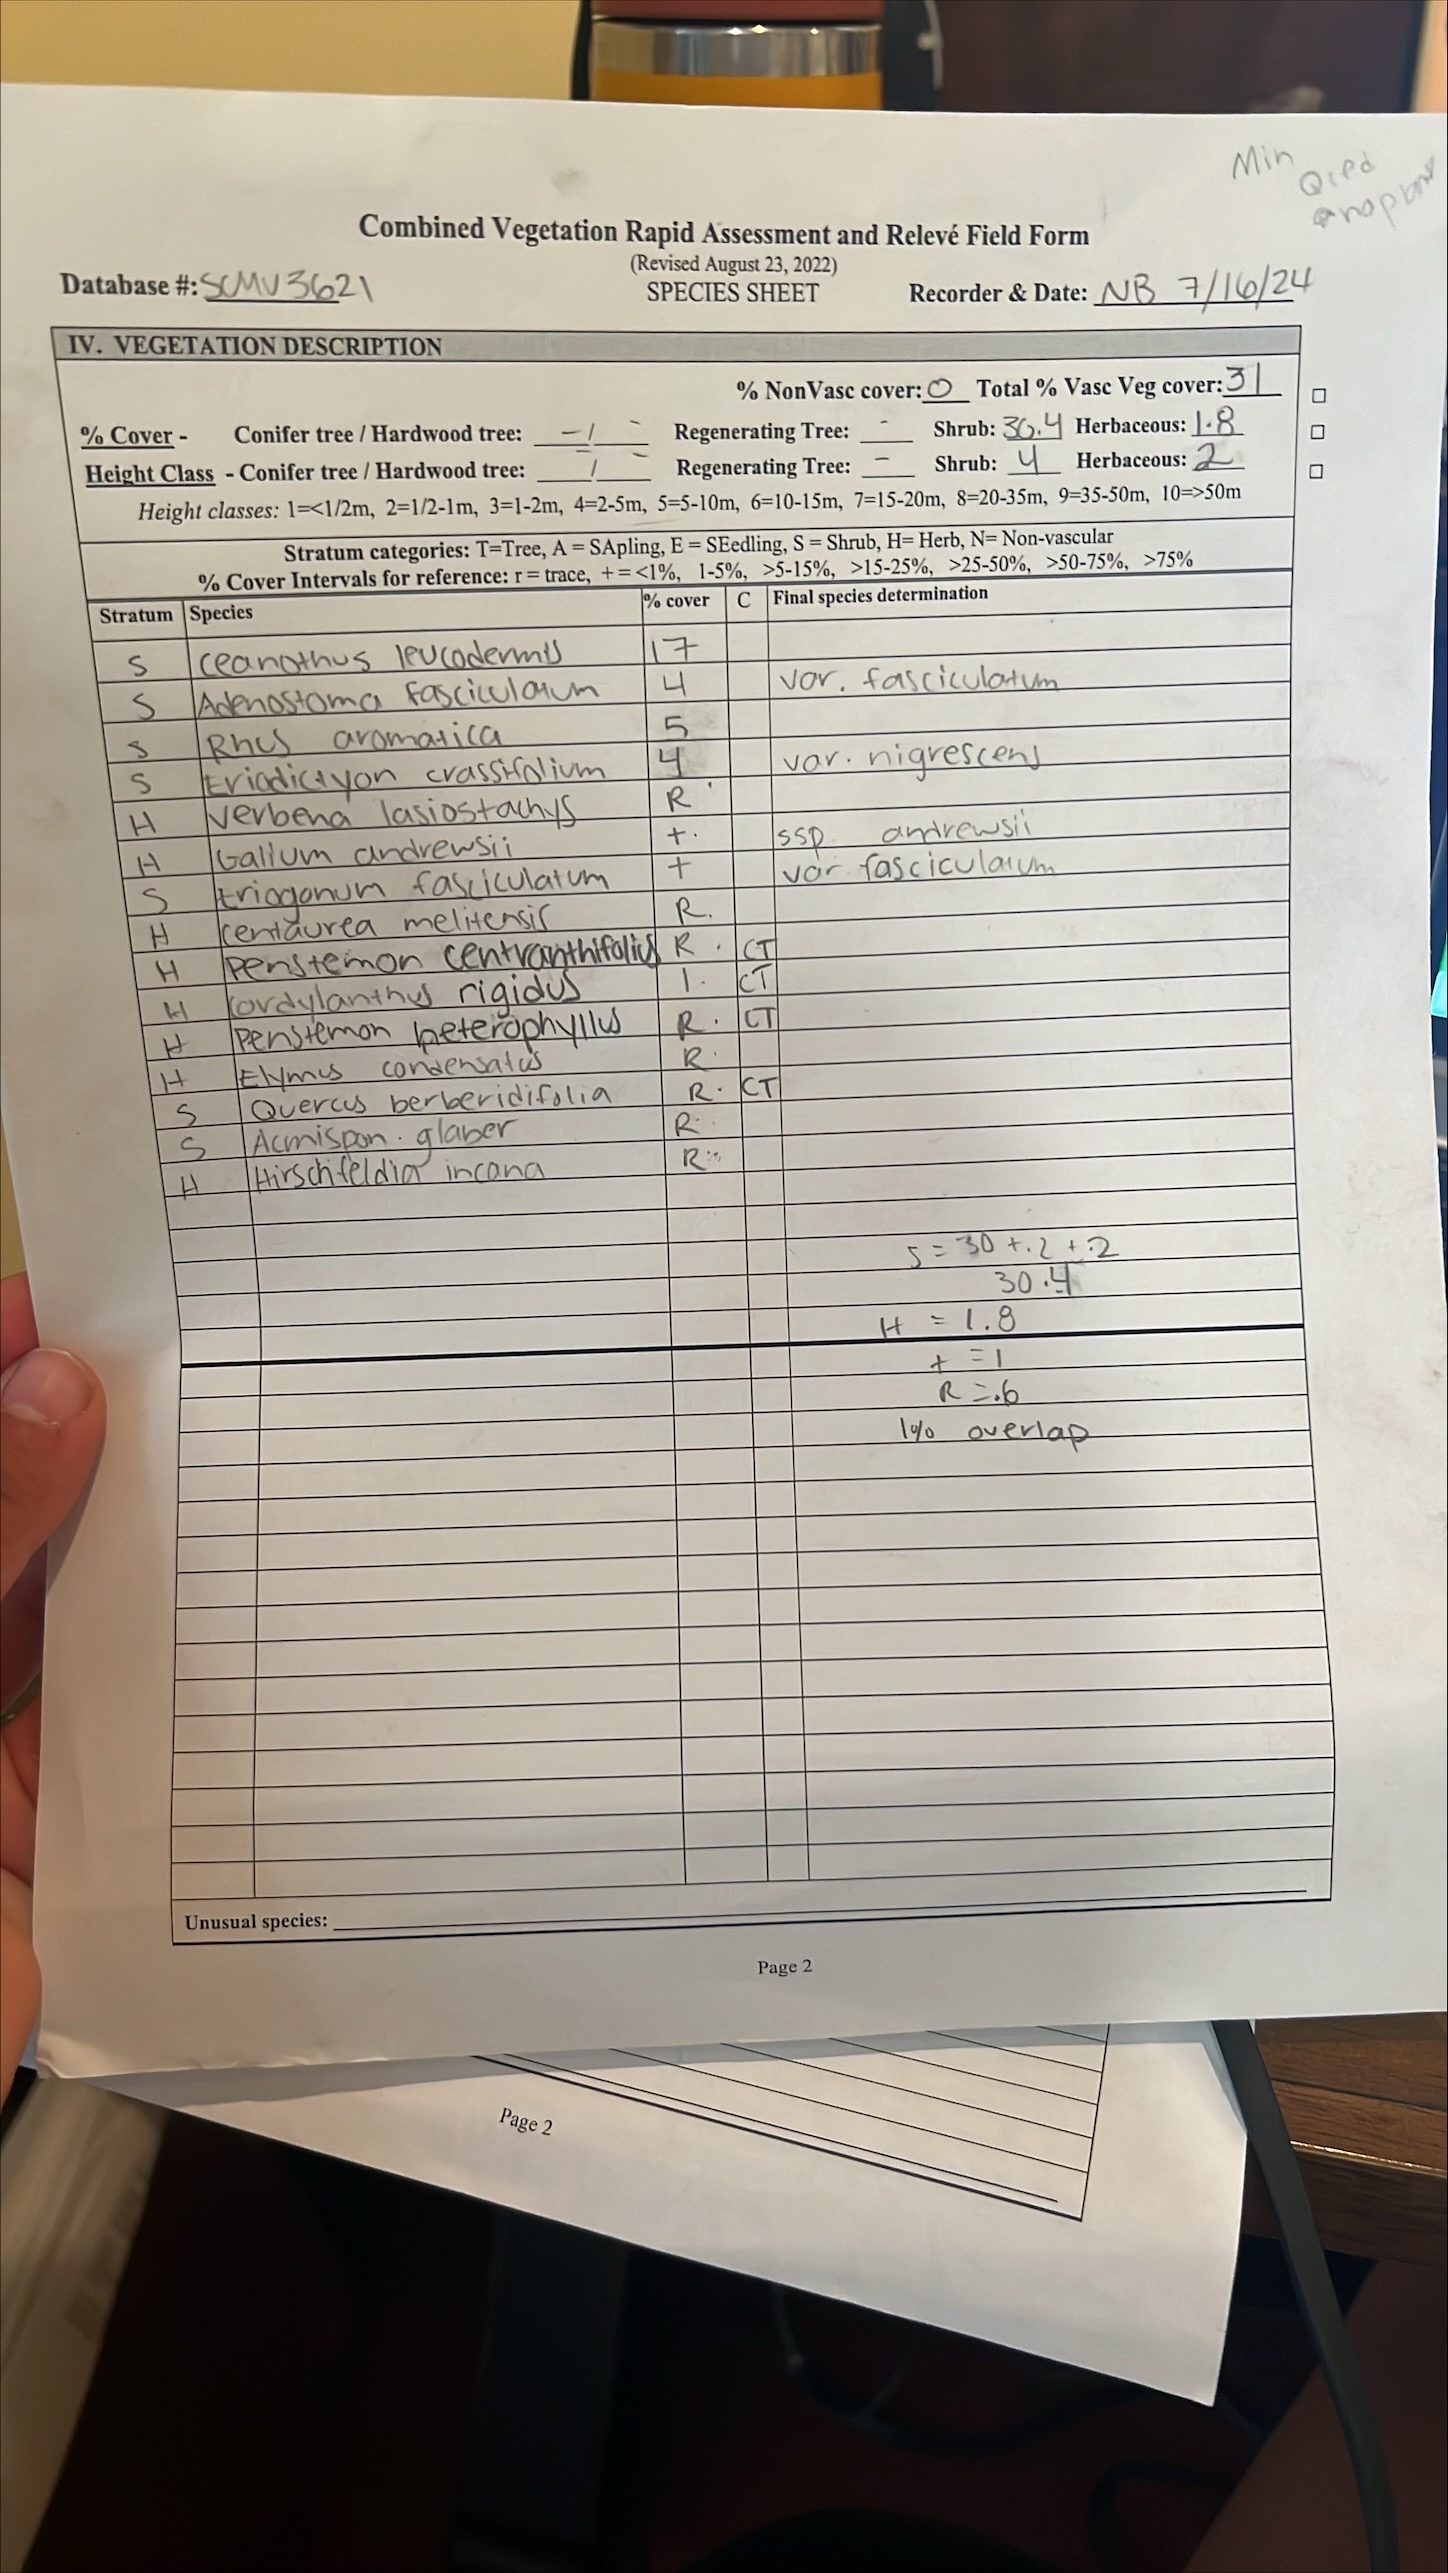 Min
Qied
Combined Vegetation Rapid Assessment and Relevé Field Form
(Revised August 23, 2022)
Database #: SCMV3621 SPECIES SHEET Recorder & Date: NB 7/16/24
IV. VEGETATION DESCRIPTION
% NonVasc cover: 0 Total % Vasc Veg cover: 31
% Cover - Conifer tree / Hardwood tree: - / - Regenerating Tree: - Shrub: 30.4 Herbaceous: 1.8
Height Class - Conifer tree / Hardwood tree: - / - Regenerating Tree: - Shrub: 4 Herbaceous: 2
Height classes: 1=<1/2m, 2=1/2-1m, 3=1-2m, 4=2-5m, 5=5-10m, 6=10-15m, 7=15-20m, 8=20-35m, 9=35-50m, 10=>50m
Stratum categories: T=Tree, A = SApling, E = SEedling, S = Shrub, H= Herb, N= Non-vascular
% Cover Intervals for reference: r = trace, + = <1%, 1-5%, >5-15%, >15-25%, >25-50%, >50-75%, >75%
Stratum Species % cover C Final species determination
S Ceanothus leucodermis 17
S Adenostoma fasciculatum 4 var. fasciculatum
S Rhus aromatica 5
S Eriodictyon crassifolium 4 var. nigrescens
H Verbena lasiostachys R
H Galium andrewsii + ssp. andrewsii
S Eriogonum fasciculatum + var fasciculatum
H Centaurea melitensis R
H Penstemon centranthifolius R CT
H Cordylanthus rigidus 1 CT
H Penstemon heterophyllus R CT
H Elymus condensatus R
S Quercus berberidifolia R CT
S Acmispon glaber R
H Hirschfeldia incana R
S = 30 + .2 + .2
30.4
H = 1.8
+ = 1
R = .6
1% overlap
Unusual species:
Page 2
Page 2